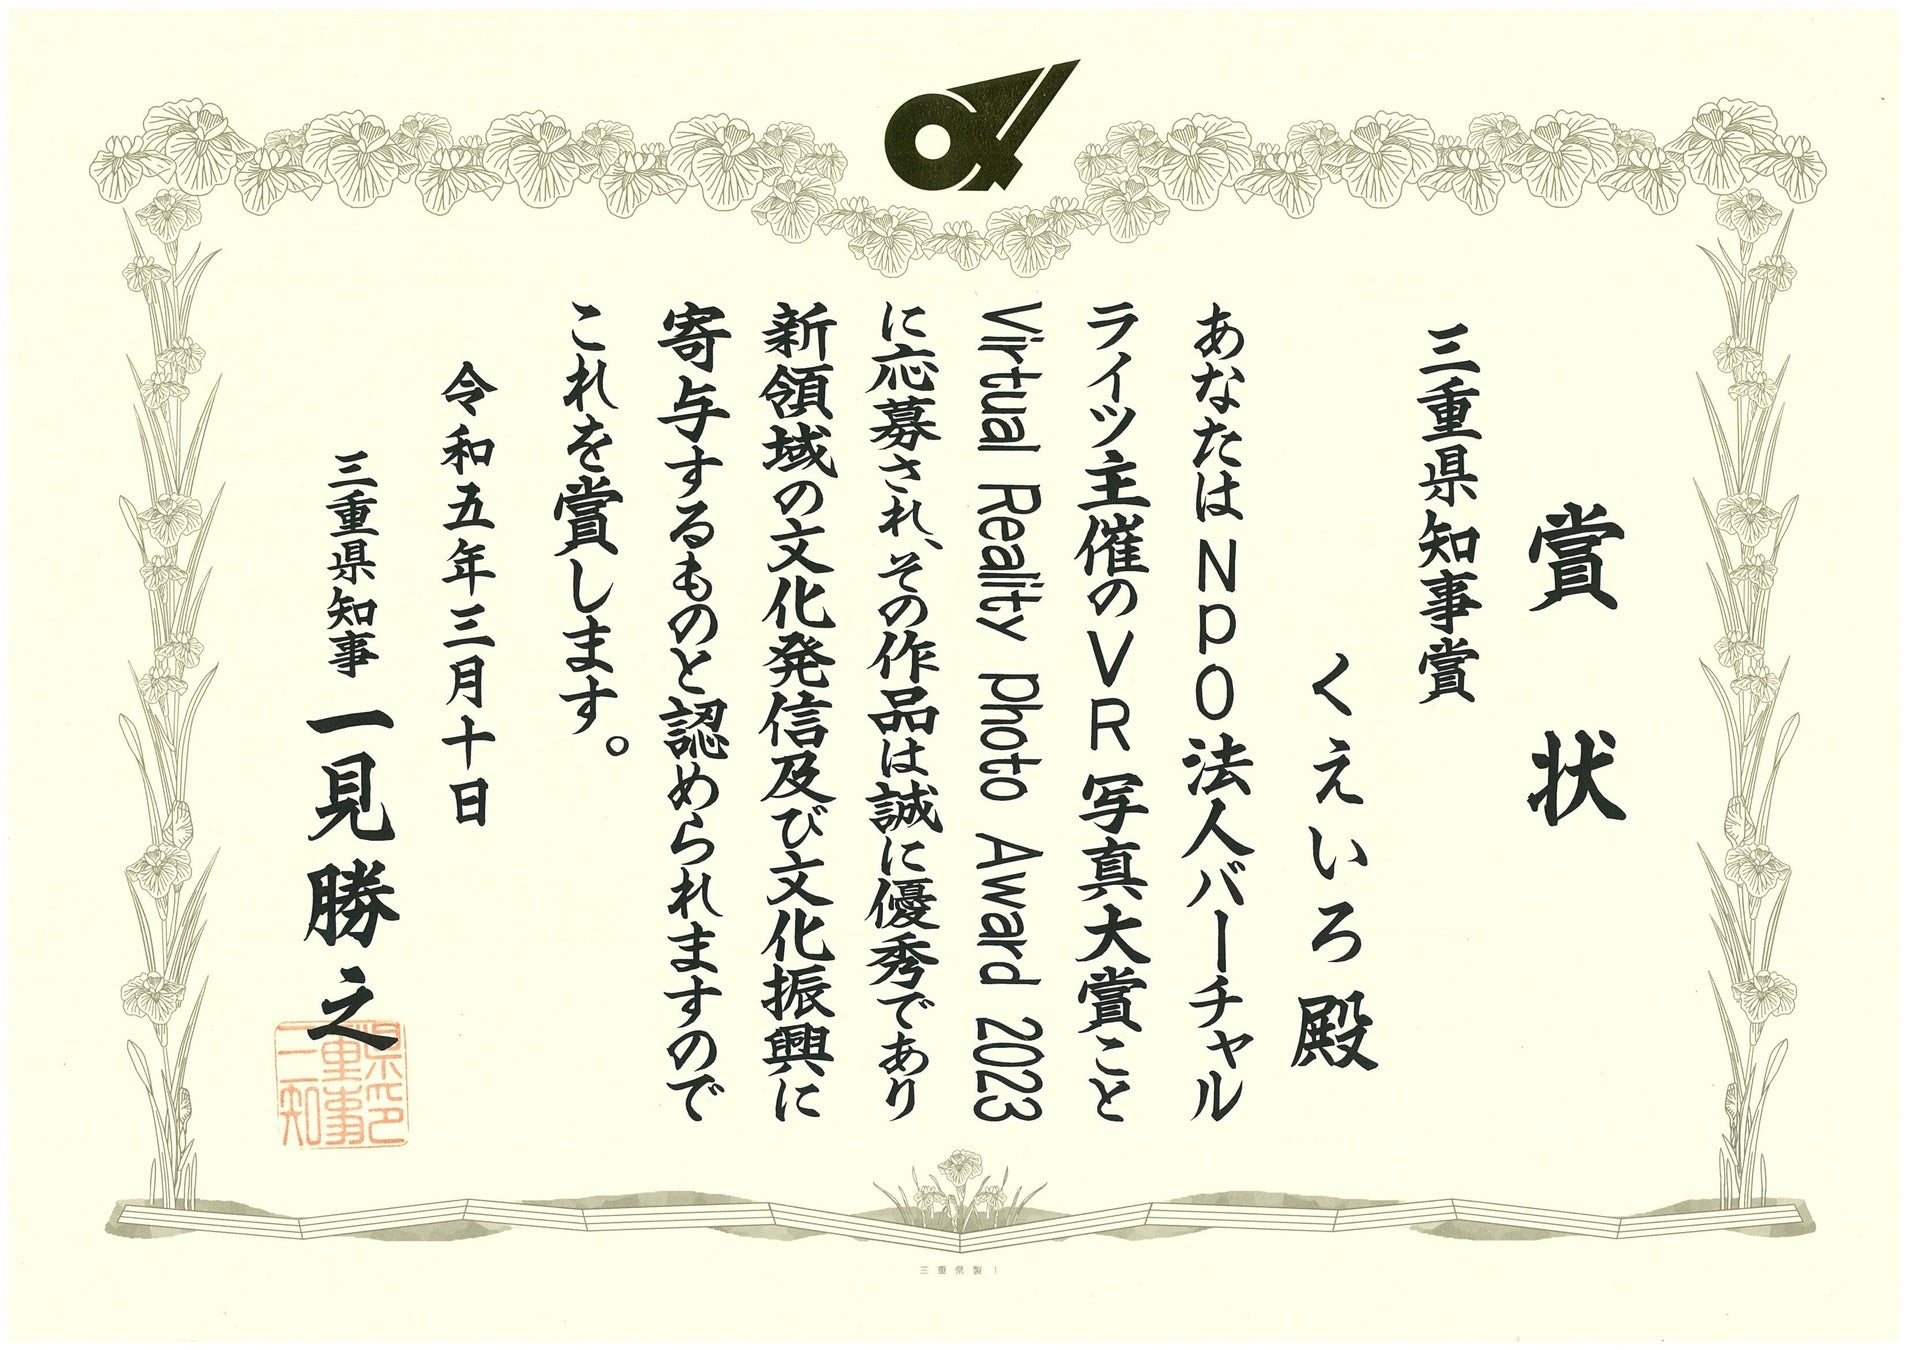 賞状
三重県知事賞
くえいろ殿
あなたはNPO法人バーチャル
ライツ主催のVR写真大賞こと
Virtual Reality photo Award 2023
に応募され、その作品は誠に優秀であり
新領域の文化発信及び文化振興に
寄与するものと認められますので
これを賞します。
令和五年三月十日
三重県知事 一見勝之
県印
重事
三知
三重県製1